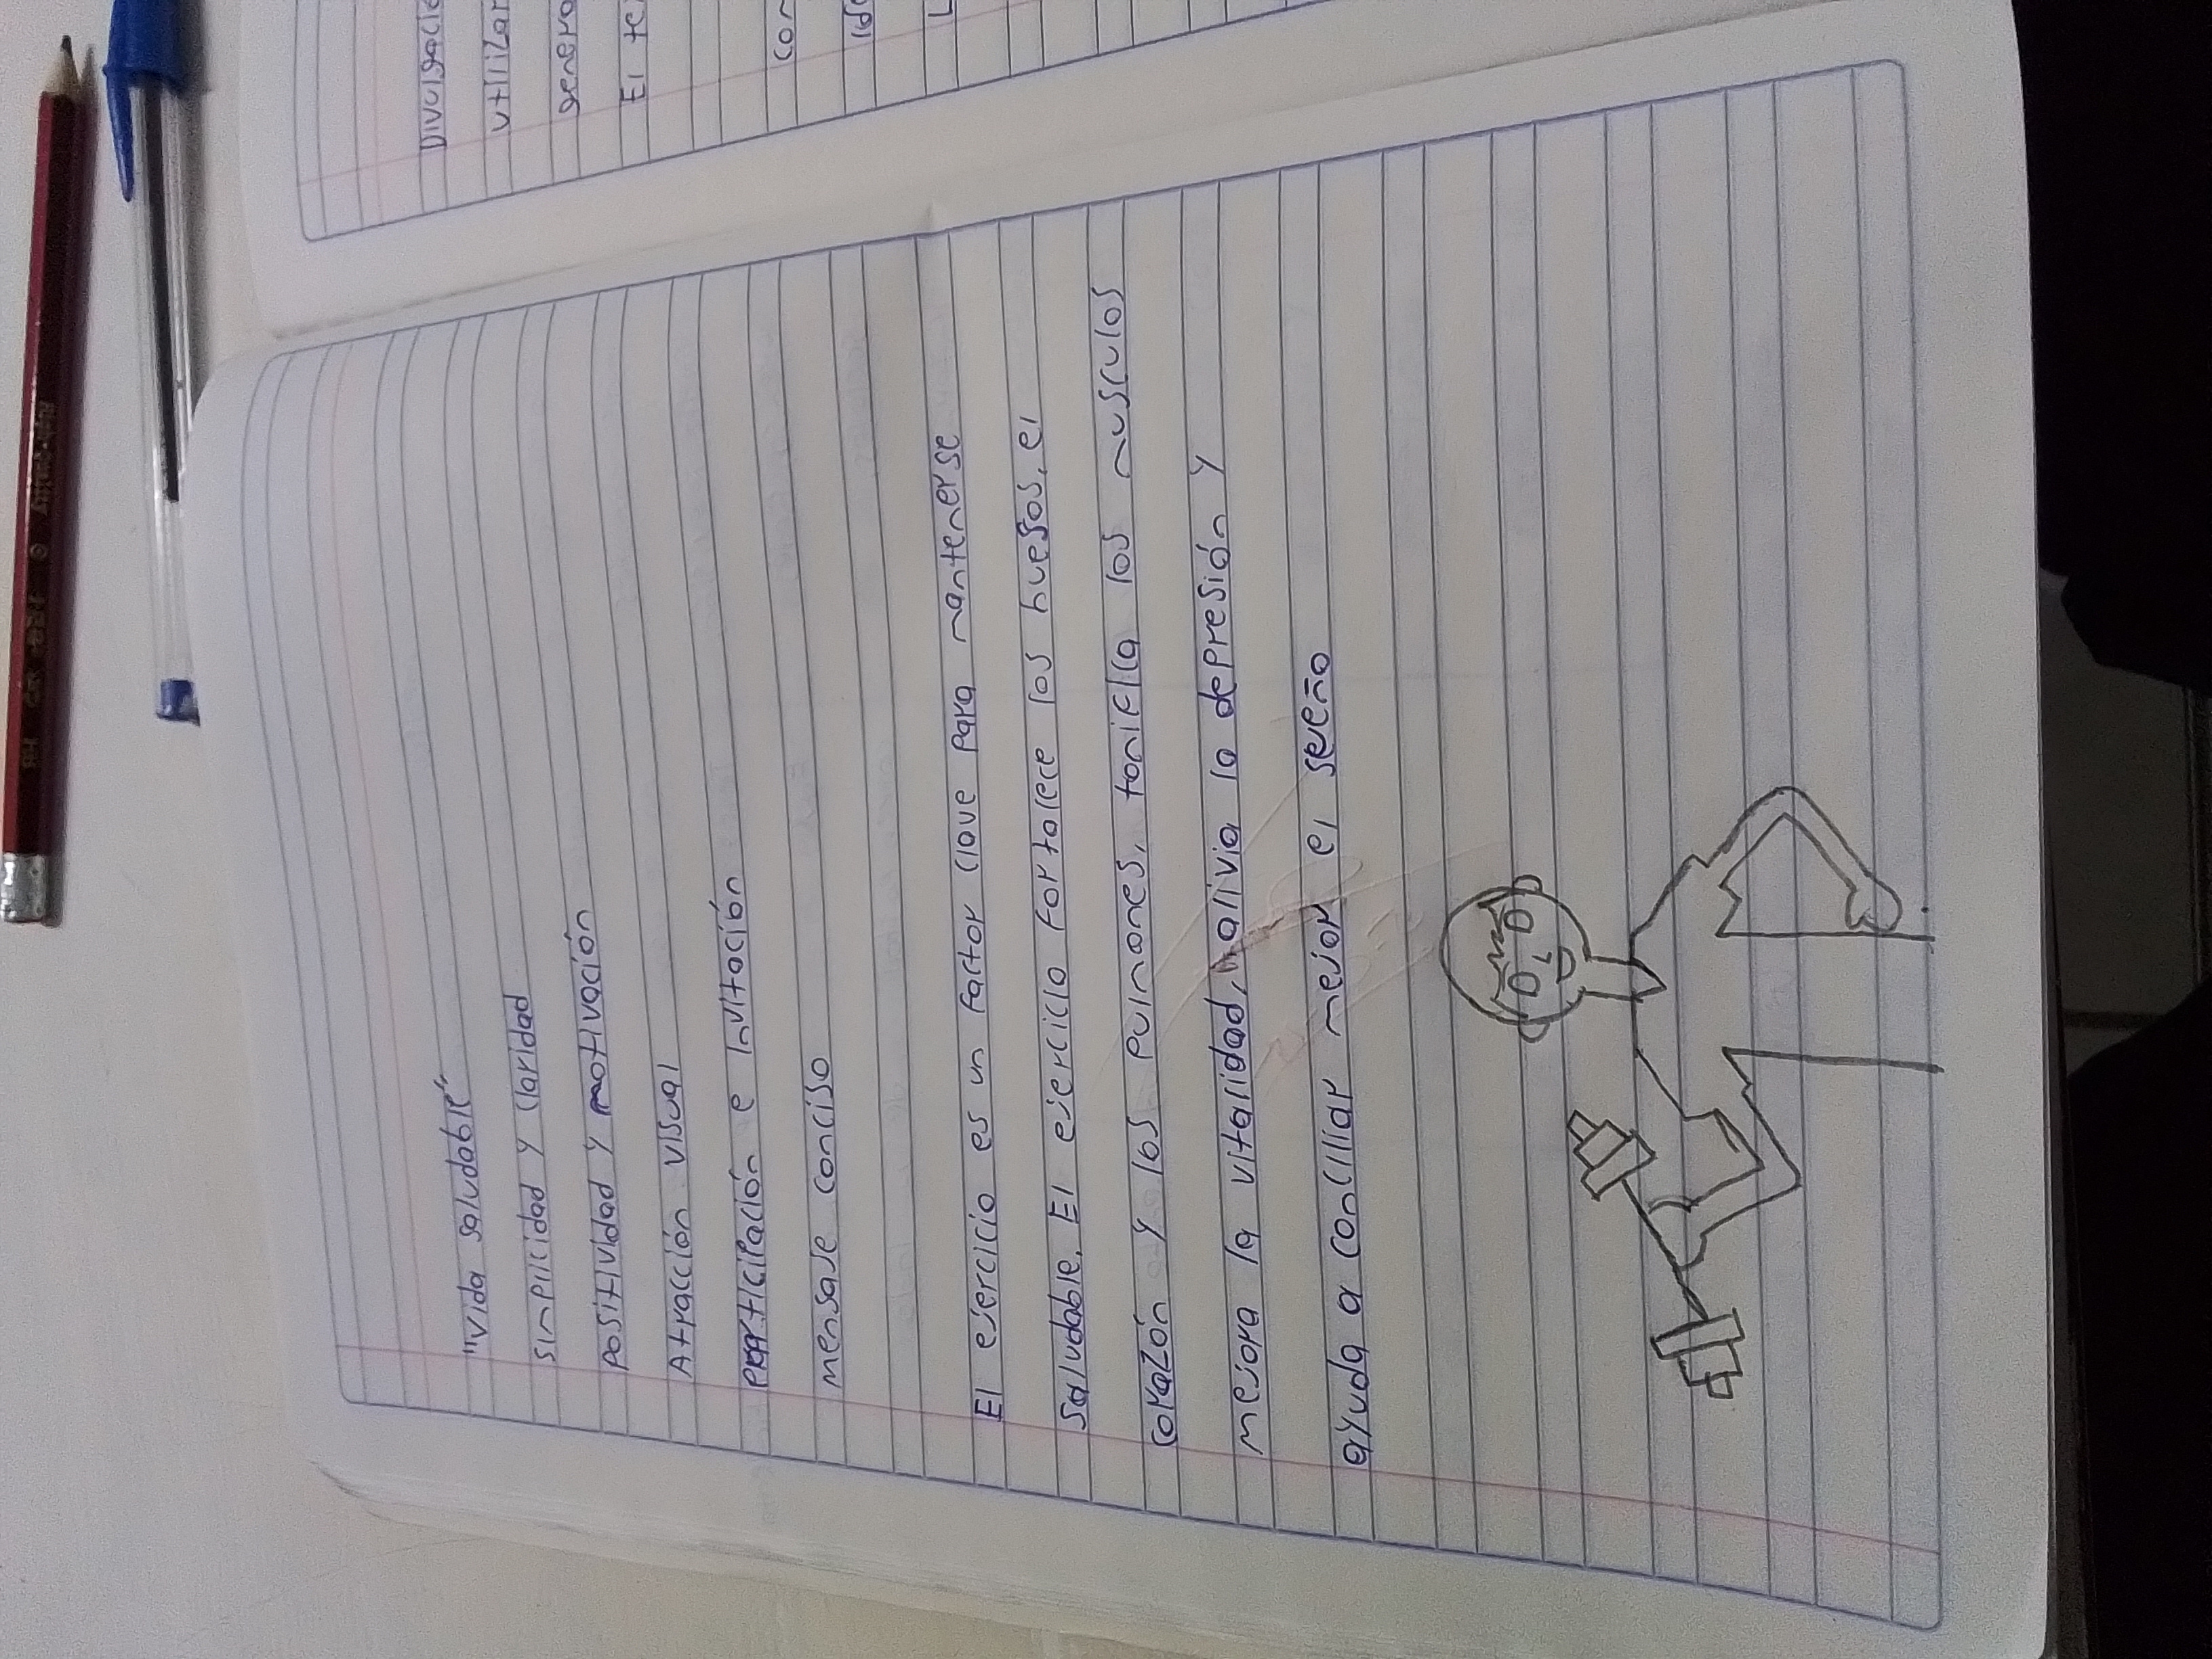 "Vida saludable"
simplicidad y claridad
positividad y motivación
Atracción visual
participación e invitación
mensaje conciso
El ejercicio es un factor clave para mantenerse
saludable. El ejercicio fortalece los huesos, el
corazón y los pulmones, tonifica los musculos
mejora la vitalidad, alivia la depresión y
ayuda a conciliar mejor el sueño
utilizar
El
con